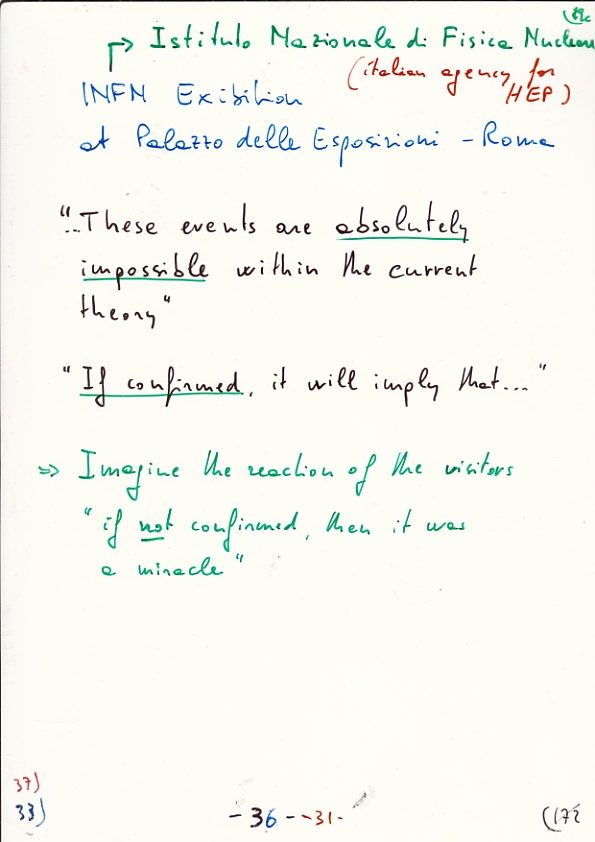 → Istituto Nazionale di Fisica Nuclear
(italian agency for
HEP)
INFN Exibition
at Palazzo delle Esposizioni - Roma
"...These events are absolutely
impossible within the current
theory"
"If confirmed, it will imply that... "
⇒ Imagine the reaction of the visitors
"if not confirmed, then it was
a miracle"
37)
33) - 36 - -31-